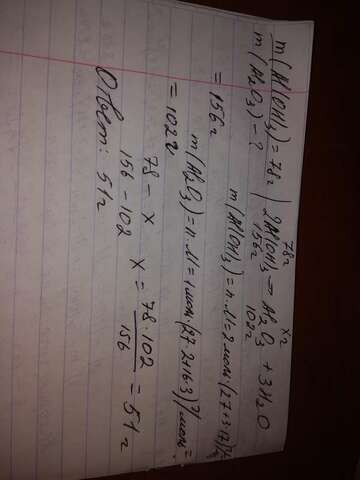 78г xг
m(Al(OH)3) = 78г | 2Al(OH)3 → Al2O3 + 3H2O
m(Al2O3) - ? 156г 102г
m(Al(OH)3) = n·M = 2моль·(27+3·17)г/моль
= 156г
m(Al2O3) = n·M = 1моль·(27·2+16·3)г/моль =
= 102г
78 - x
156 - 102
x = 78·102 / 156 = 51г
Ответ: 51г